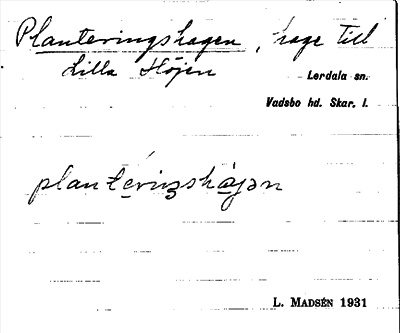 Planteringshagen, hage till
Lilla Höjen
Lerdala sn.
Vadsbo hd. Skar. l.
plantériŋshàgən
L. MADSÉN 1931